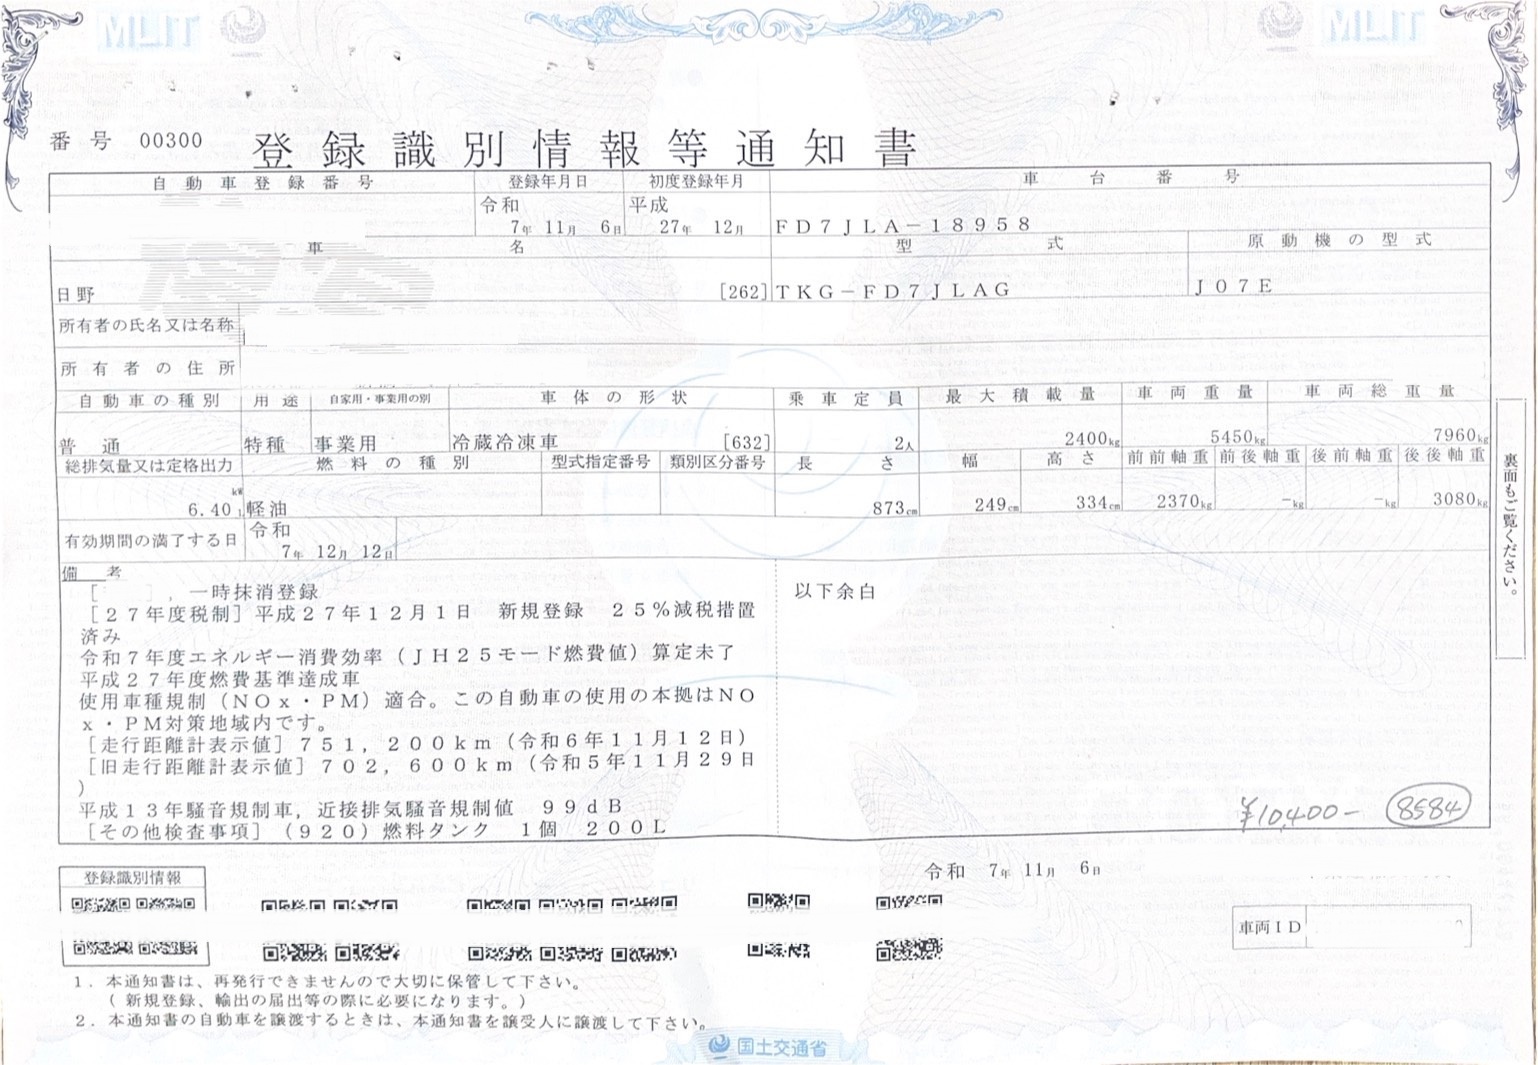 MLIT
MLIT
番号 00300 登録識別情報等通知書
自動車登録番号 登録年月日 初度登録年月 車台番号
令和 7年 11月 6日 平成 27年 12月 FD7JLA-18958
車名 型式 原動機の型式
日野 [262] TKG-FD7JLAG J07E
所有者の氏名又は名称
所有者の住所
自動車の種別 用途 自家用・事業用の別 車体の形状 乗車定員 最大積載量 車両重量 車両総重量
普通 特種 事業用 冷蔵冷凍車 [632] 2人 2400kg 5450kg 7960kg
総排気量又は定格出力 燃料の種別 型式指定番号 類別区分番号 長さ 幅 高さ 前前軸重 前後軸重 後前軸重 後後軸重
kW
6.40L 軽油 873cm 249cm 334cm 2370kg -kg -kg 3080kg
有効期間の満了する日 令和 7年 12月 12日
裏面もご覧ください。
備考
[ ],一時抹消登録
以下余白
[27年度税制]平成27年12月1日 新規登録 25%減税措置
済み
令和7年度エネルギー消費効率(JH25モード燃費値)算定未了
平成27年度燃費基準達成車
使用車種規制(NOx・PM)適合。この自動車の使用の本拠はNO
x・PM対策地域内です。
[走行距離計表示値]751,200km(令和6年11月12日)
[旧走行距離計表示値]702,600km(令和5年11月29日
)
平成13年騒音規制車,近接排気騒音規制値 99dB
[その他検査事項](920)燃料タンク 1個 200L
¥10,400- 8584
令和 7年 11月 6日
登録識別情報
車両ID
1.本通知書は、再発行できませんので大切に保管して下さい。
(新規登録、輸出の届出等の際に必要になります。)
2.本通知書の自動車を譲渡するときは、本通知書を譲受人に譲渡して下さい。
国土交通省